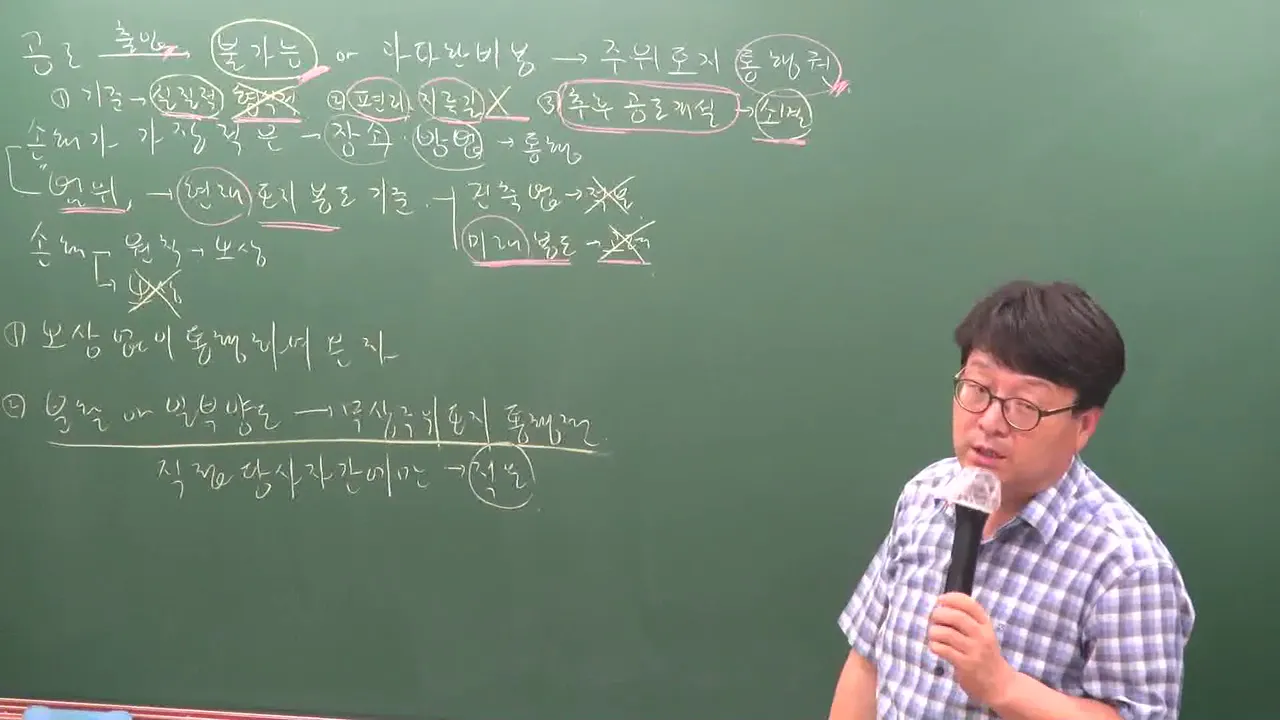 공로 출입 불가능 or 과다한 비용 → 주위토지 통행권
① 기준 → 실질적 형식적 ② 편리, 지름길 X ③ 추후 공로개설 → 소멸
손해가 가장 적은 → 장소·방법 → 통행
"범위 → 현재 토지 용도 기준 건축법 → 적용
미래 용도 →
손해 원칙 → 보상
→ 보상
① 보상 없이 통행하여 본 자
② 분할 or 일부양도 → 무상주위토지 통행권
직접 당사자간에만 → 적용